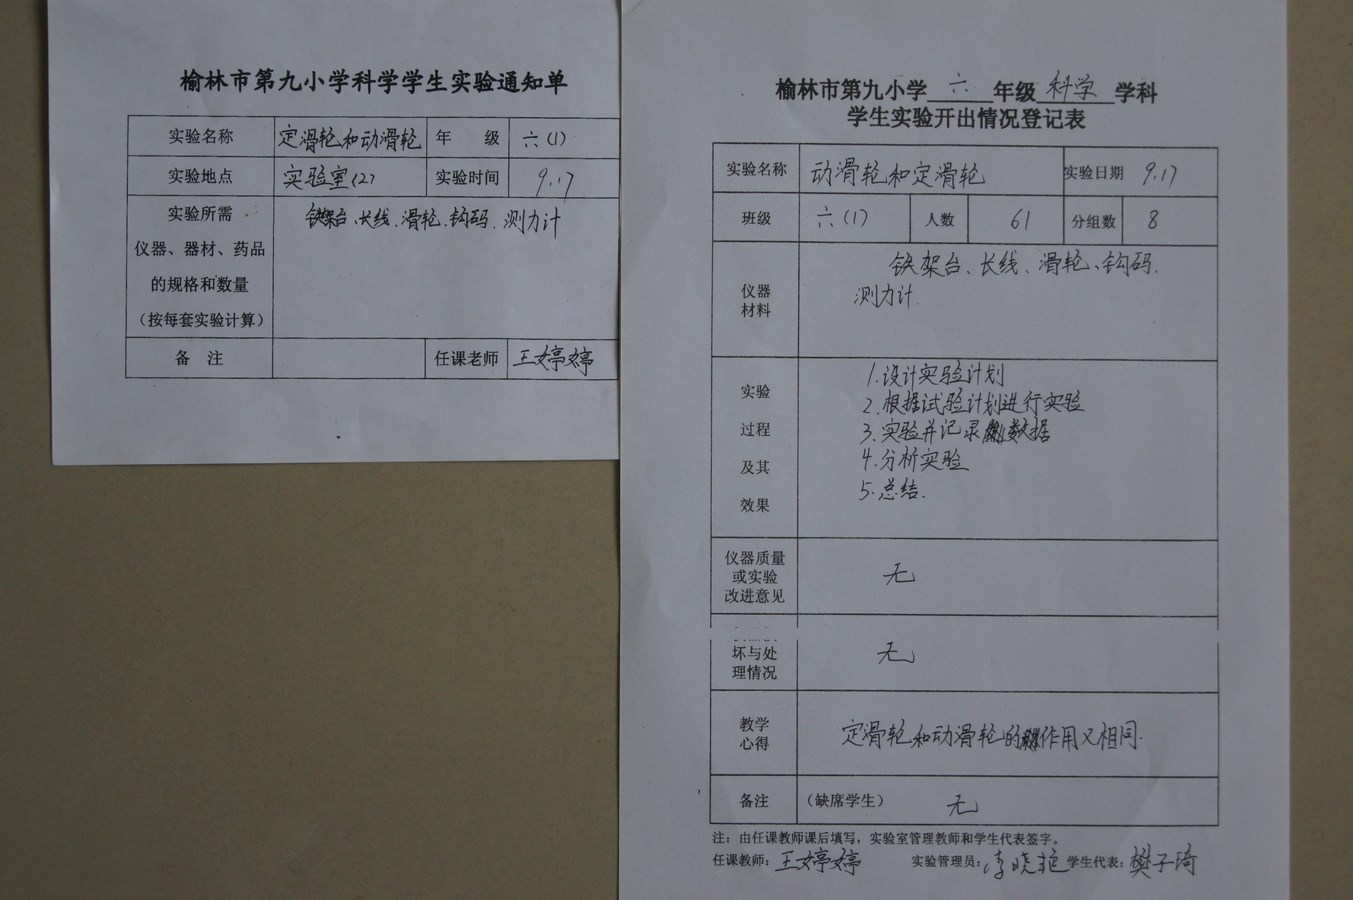 榆林市第九小学科学学生实验通知单
实验名称 定滑轮和动滑轮 年 级 六(1)
实验地点 实验室(2) 实验时间 9.17
实验所需
仪器、器材、药品
的规格和数量
(按每套实验计算)
铁架台、长线、滑轮、钩码、测力计
备 注 任课老师 王婷婷
榆林市第九小学 六 年级 科学 学科
学生实验开出情况登记表
实验名称 动滑轮和定滑轮 实验日期 9.17
班级 六(1) 人数 61 分组数 8
仪器
材料
铁架台、长线、滑轮、钩码、
测力计
实验
过程
及其
效果
1.设计实验计划
2.根据试验计划进行实验
3.实验并记录数据
4.分析实验
5.总结.
仪器质量
或实验
改进意见
无
坏与处
理情况
无
教学
心得
定滑轮和动滑轮的作用又相同.
备注 (缺席学生) 无
注:由任课教师课后填写,实验室管理教师和学生代表签字。
任课教师:王婷婷 实验管理员:李晓艳 学生代表:樊子琦